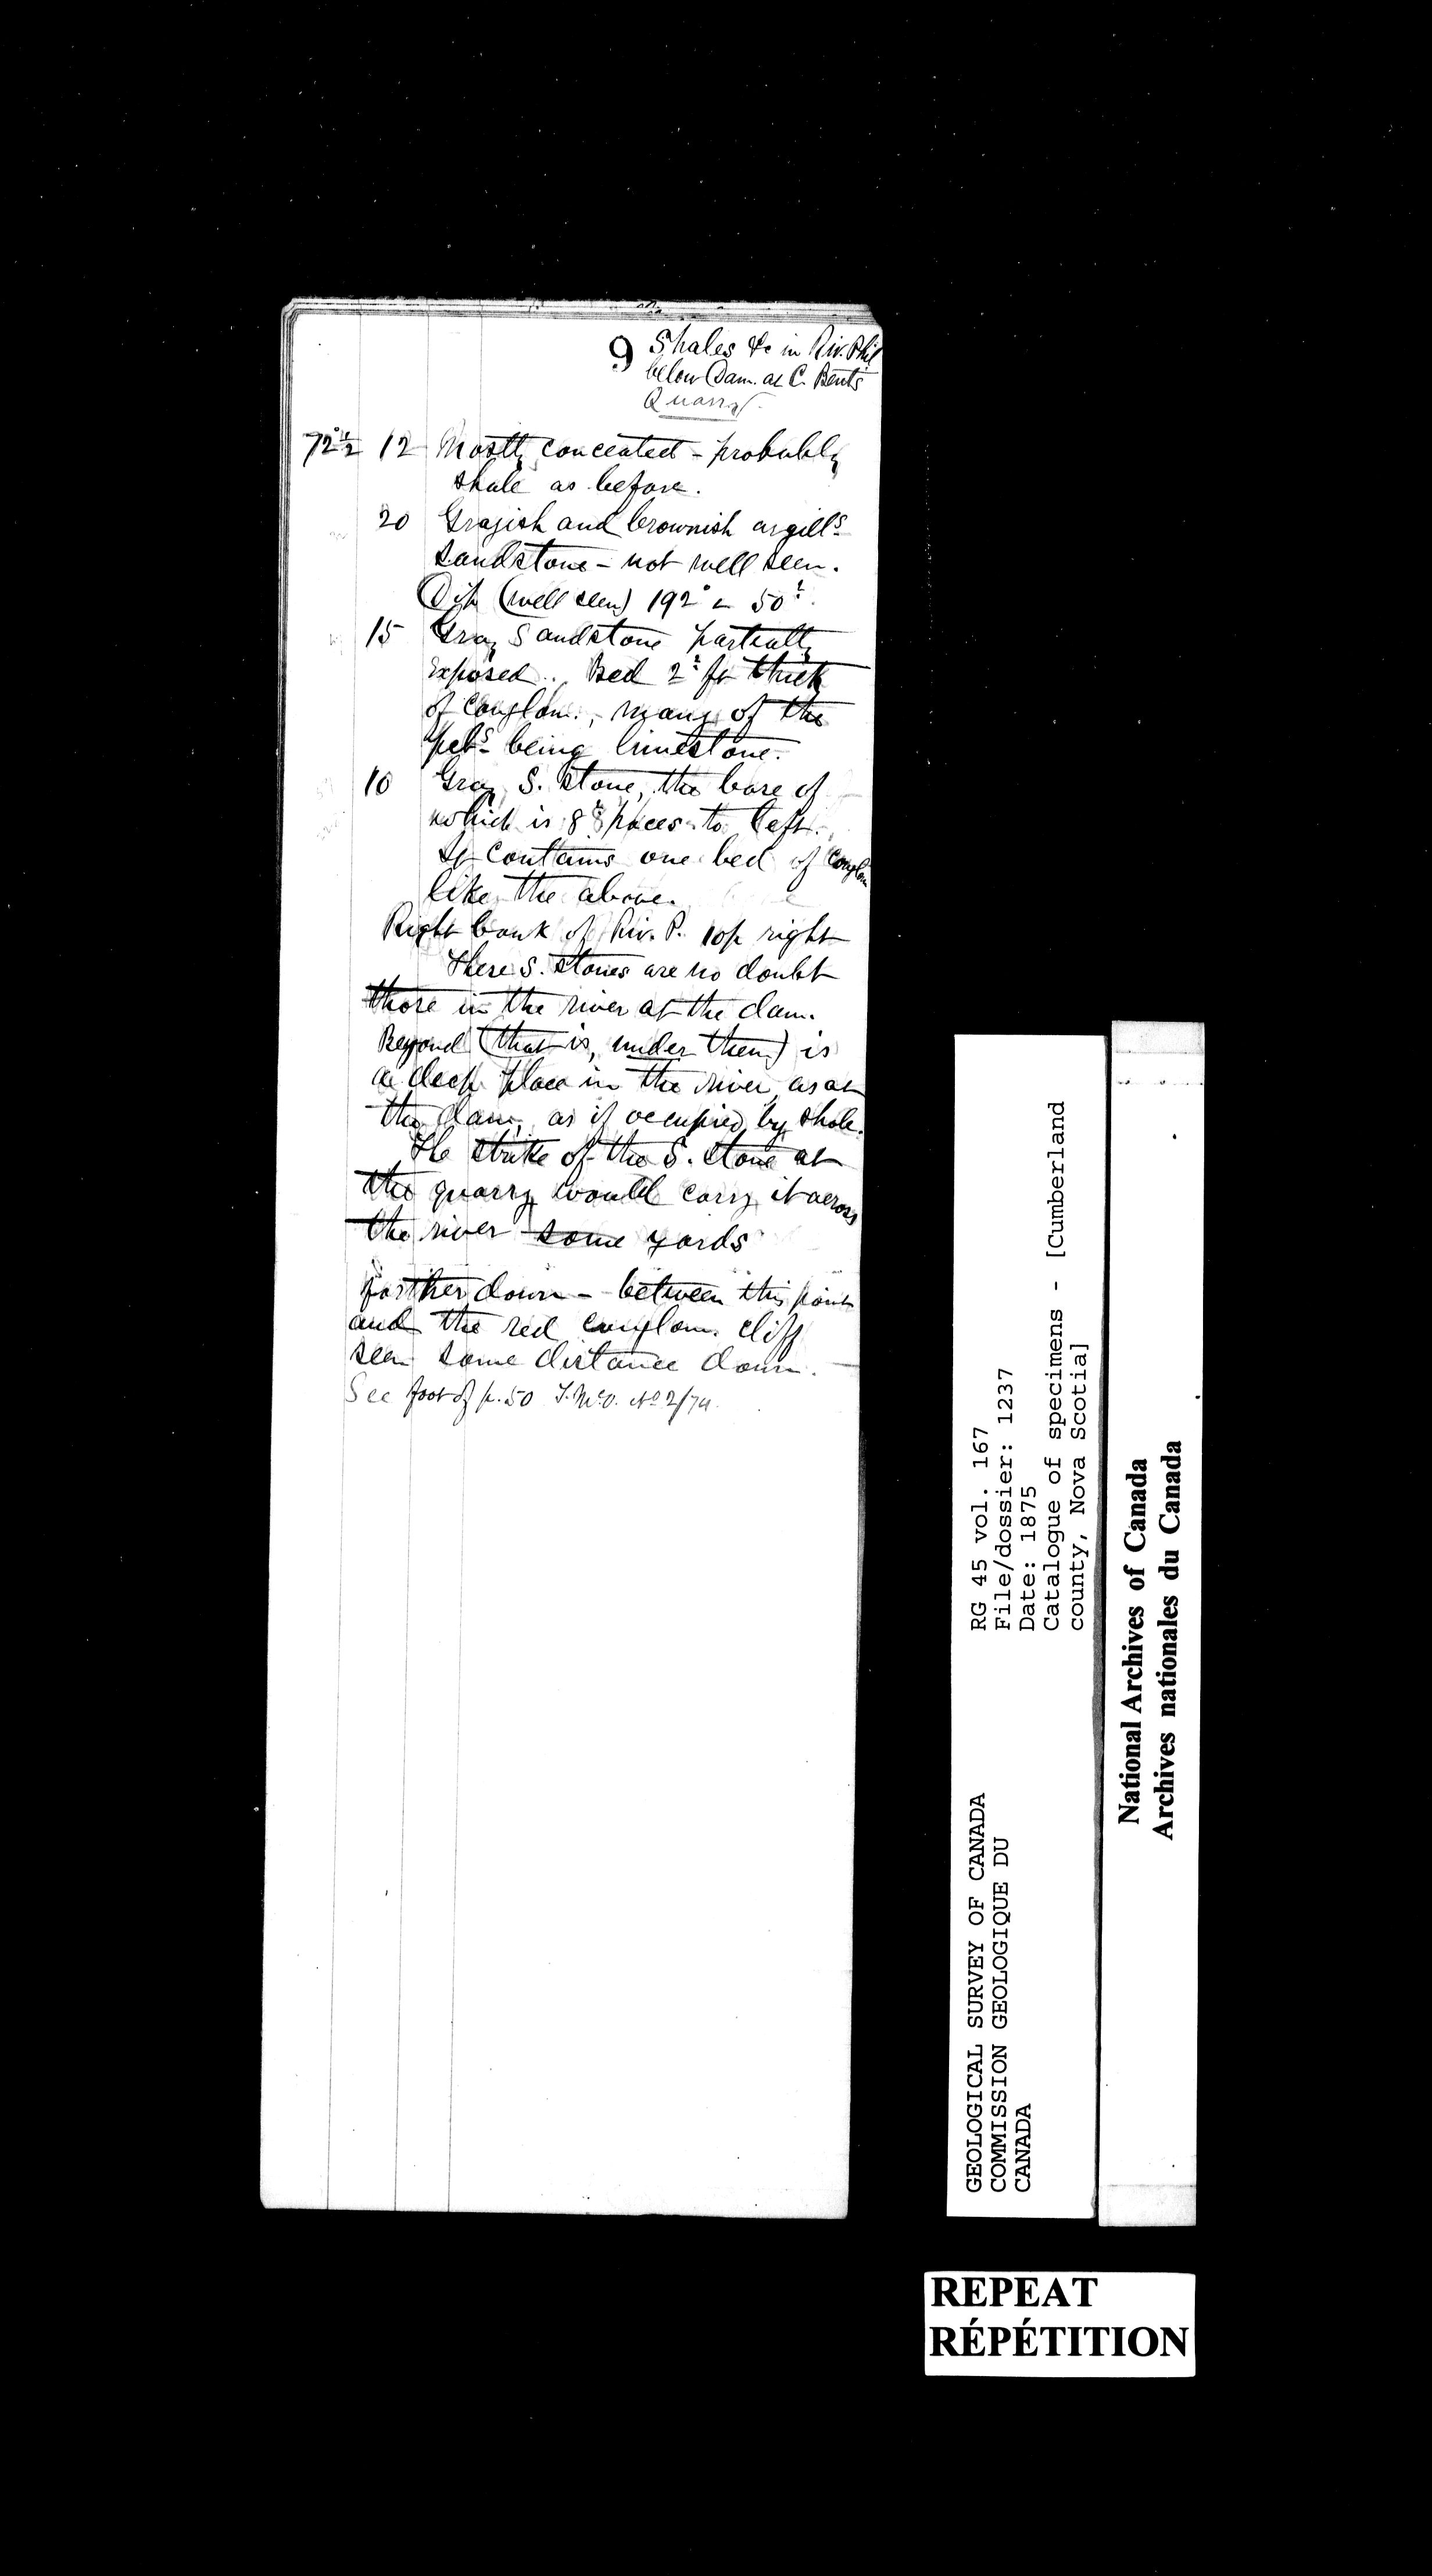 9 Shales &c in Riv. Phil
below Dam. at C. Bents
Quarry.
72° 12 Mostly concealed - probably
shale as before.
20 Grayish and brownish argills
sandstone - not well seen.
Dip (well seen) 192° 50°.
15 Gray Sandstone partially
exposed. Bed 2 ft thick
of conglom., many of the
pebs being limestone.
10 Gray S. stone, the base of
which is 8 paces to left.
It contains one bed of conglom
like the above.
Right bank of Riv. P. 10p right
These S. stones are no doubt
those in the river at the dam.
Beyond (that is, under them) is
a deep place in the river, as at
the dam, as if occupied by shale.
The strike of the S. stone at
the quarry would carry it across
the river some yards
farther down - between this point
and the red conglom. cliff
seen some distance down.
See foot of p. 50 No 2/74.
RG 45 vol. 167
File/dossier: 1237
Date: 1875
Catalogue of specimens - [Cumberland
county, Nova Scotia]
GEOLOGICAL SURVEY OF CANADA
COMMISSION GEOLOGIQUE DU
CANADA
National Archives of Canada
Archives nationales du Canada
REPEAT
RÉPÉTITION